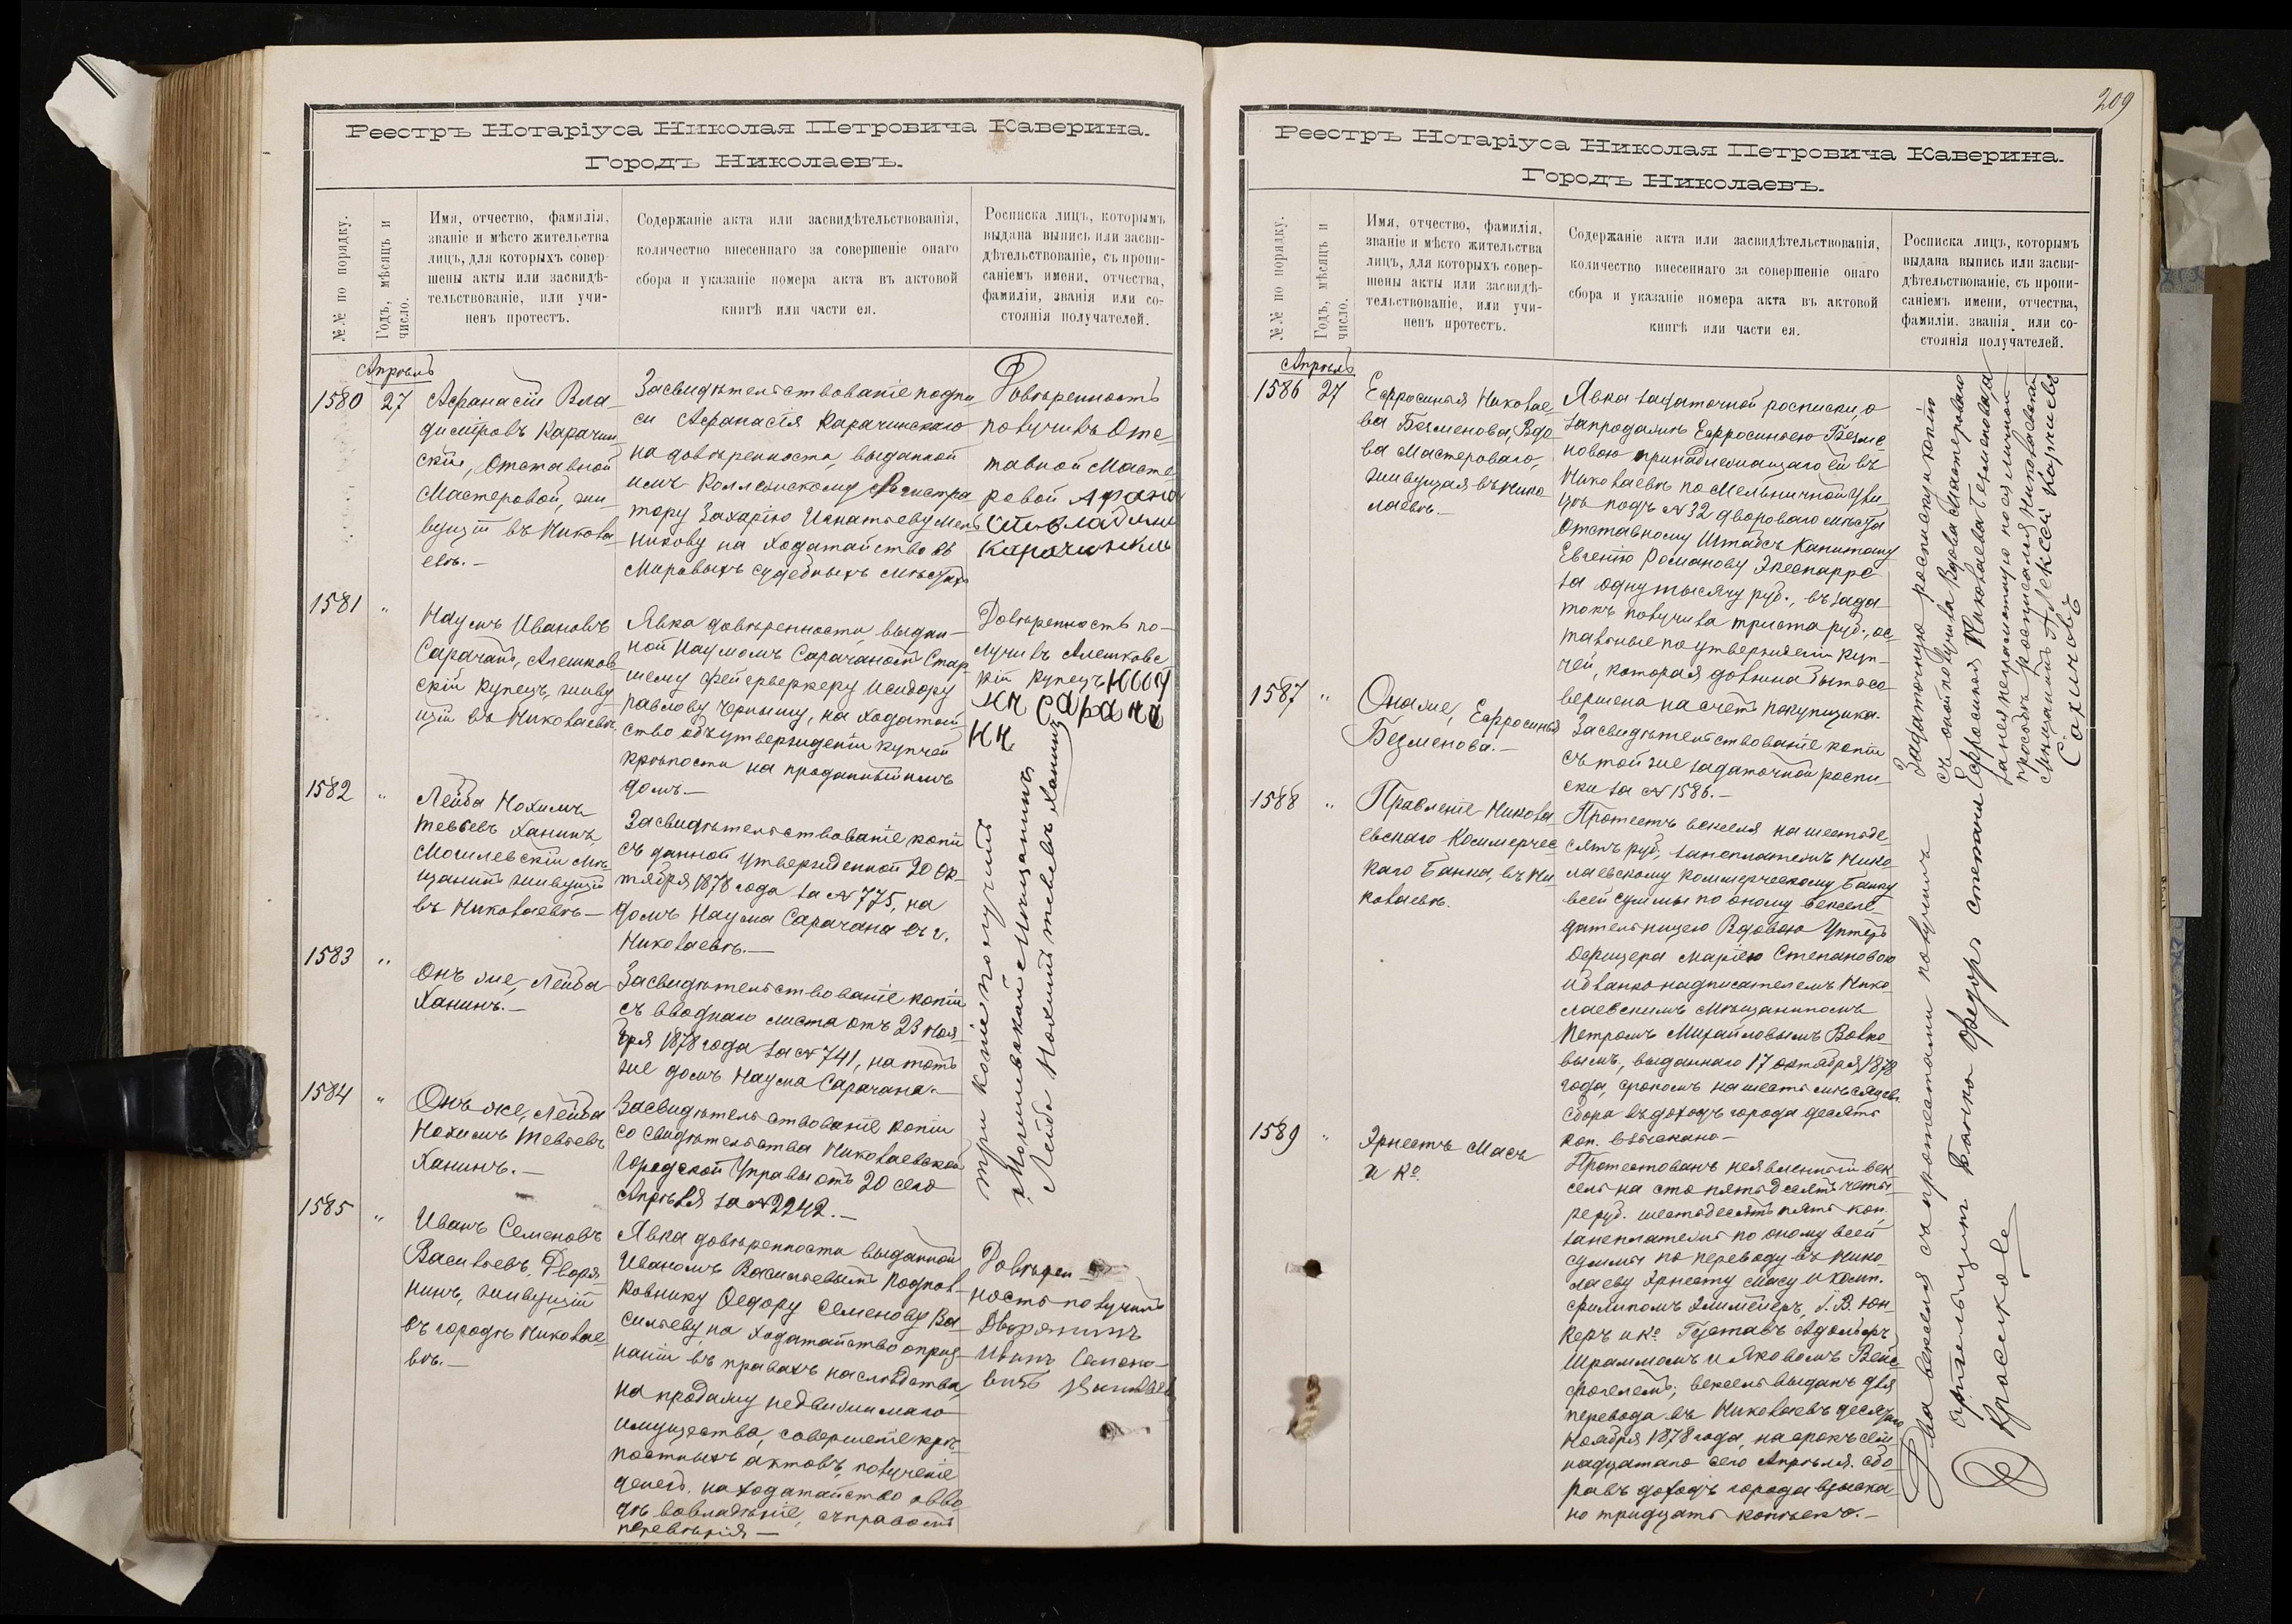 Реестръ Нотаріуса Николая Петровича Каверина.
Городъ Николаевъ.
№№ по порядку.
Годъ, мѣсяцъ и
число.
Имя, отчество, фамилія,
званіе и мѣсто жительства
лицъ, для которыхъ совер-
шены акты или засвидѣ-
тельствованіе, или учи-
ненъ протестъ.
Содержаніе акта или засвидѣтельствованія,
количество внесеннаго за совершеніе онаго
сбора и указаніе номера акта въ актовой
книгѣ или части ея.
Росписка лицъ, которымъ
выдана выпись или засви-
дѣтельствованіе, съ пропи-
саніемъ имени, отчества,
фамиліи, званія или со-
стоянія получателей.
Апрѣль
1580
27
Афанасій Вла-
диміровъ Карачин
скій, Отставной
Мастеровой, жи
вущій въ Никола
евѣ.-
Засвидѣтельствованіе подпи
си Афанасія Карачинскаго
на довѣренности, выданной
имъ Коллежскому Регистра
тору Захарію Игнатьеву Мель
никову на ходатайство въ
Мировыхъ судебныхъ мѣстахъ
Довѣренность
получилъ Отс
тавной Масте
ровой Афана
Карачински
1581
"
Наумъ Ивановъ
Сарачанъ, Алешков
скій купецъ, живу
щій въ Николаевѣ.
Явка довѣренности, выдан-
ной Наумомъ Сарачаномъ Стар
шему фейерверкеру Исидору
Павлову Черныщу, на ходатай
ство объ утвержденіи купчей
крѣпости на проданный имъ
домъ.-
Довѣренность по-
лучилъ Алешковс
кій купецъ
1582
"
Лейба Нохимъ
Тевьевъ Ханинъ,
Могилевскій мѣ
щанинъ живущій
въ Николаевѣ-
Засвидѣтельствованіе копіи
съ данной утвержденной 20 Ок-
тября 1878 года за № 775, на
домъ Наума Сарачана въ г.
Николаевѣ.-
1583
"
Онъ же, Лейба
Ханинъ.-
Засвидѣтельствованіе копіи
съ вводнаго листа отъ 23 Ноя
бря 1878 года за № 741, на тотъ
же домъ Наума Сарачана.-
1584
"
Онъ же, Лейба
Нохимъ Тевьевъ
Ханинъ.-
Засвидѣтельствованіе копіи
со свидѣтельства Николаевской
Городской Управы отъ 20 сего
Апрѣля за № 2242.-
три копіе получилъ
Могилевскай Мищанинъ
Лейба Нохимъ тевевъ Ханинъ
1585
"
Иванъ Семеновъ
Васильевъ, Дворя
нинъ, живущій
въ городѣ Николае
вѣ.-
Явка довѣренности выданной
Иваномъ Васильевымъ Подпол-
ковнику Ѳедору Семенову Ва-
сильеву, на ходатайство о приз-
наніи въ правахъ наслѣдства,
на продажу недвижимаго
имущества, совершеніе крѣ-
постныхъ актовъ, полученіе
денегъ, на ходатайство о вво-
дѣ во владѣніе, съ правомъ
перевѣрія-
Довѣрен-
ность получилъ
Дворянинъ
Иванъ Семено-
вичъ Васильев
209
Реестръ Нотаріуса Николая Петровича Каверина.
Городъ Николаевъ.
№№ по порядку.
Годъ, мѣсяцъ и
число.
Имя, отчество, фамилія,
званіе и мѣсто жительства
лицъ, для которыхъ совер-
шены акты или засвидѣ-
тельствованіе, или учи-
ненъ протестъ.
Содержаніе акта или засвидѣтельствованія,
количество внесеннаго за совершеніе онаго
сбора и указаніе номера акта въ актовой
книгѣ или части ея.
Росписка лицъ, которымъ
выдана выпись или засви-
дѣтельствованіе, съ пропи-
саніемъ имени, отчества,
фамиліи, званія или со-
стоянія получателей.
Апрѣль
1586
27
Ефросинья Николае
ва Безменова, Вдо-
ва Мастероваго,
живущая въ Нико
лаевѣ.-
Явка задаточной росписки, о
запродажѣ Ефросиньею Безме
новою принадлежащаго ей въ
Николаевѣ по Мельничной ули
цѣ подъ № 32 двороваго мѣста
Отставному Штабсъ Капитану
Евгенію Романову Экеспарре
за одну тысячу руб., въ зада-
токъ получила триста руб., ос-
тальные по утвержденіи куп-
чей, которая должна быть со-
вершена на счетъ покупщика.
1587
"
Она же, Ефросинья
Безменова.-
Засвидѣтельствованіе копіи
съ той же задаточной роспи-
ски за № 1586.-
Задаточную росписку и копію
съ оной получила Вдова Мастероваго
Ефросинья Николаева Безменова, а
за нея неграмотную по ея личной
просьбѣ росписался Николаевскій
Мѣщанинъ Алексей
1588
"
Правленіе Никола
евскаго Коммерчес
каго Банка, въ Ни
колаевѣ.
Протестъ векселя на шестьде
сятъ руб., за неплатежъ Нико
лаевскому Коммерческому Банку
всей суммы по оному векселе-
дательницею Вдовою Унтеръ
Офицера Маріею Степановою
и бланконадписателемъ Нико
лаевскимъ Мѣщаниномъ
Петромъ Михайловымъ Волко
вымъ, выданнаго 17 октября 1878
года, срокомъ на шесть мѣсяцевъ.
Сбора въ доходъ города десять
коп. взыскано-
1589
"
Эрнестъ Масъ
и Ко.
Протестованъ неявленный век
сель на сто пятьдесятъ четы-
ре руб. шестьдесятъ пять коп.
за неплатежъ по оному всей
суммы по переводу въ Нико-
лаеву Эрнесту Масу и Комп.
Филипомъ Элимейеръ, I. В. Юн-
керъ и Ко Густавъ Адольфъ
Шраммомъ и Яковомъ Вейс
фогелемъ; вексель выданъ для
перевода въ Николаевъ десятаго
Ноября 1878 года, на срокъ сем
надцатаго сего Апрѣля. Сбо
ра въ доходъ города взыска
но тридцать копѣекъ.-
Два векселя съ протестами получилъ
артельщикъ банка Федоръ степанов